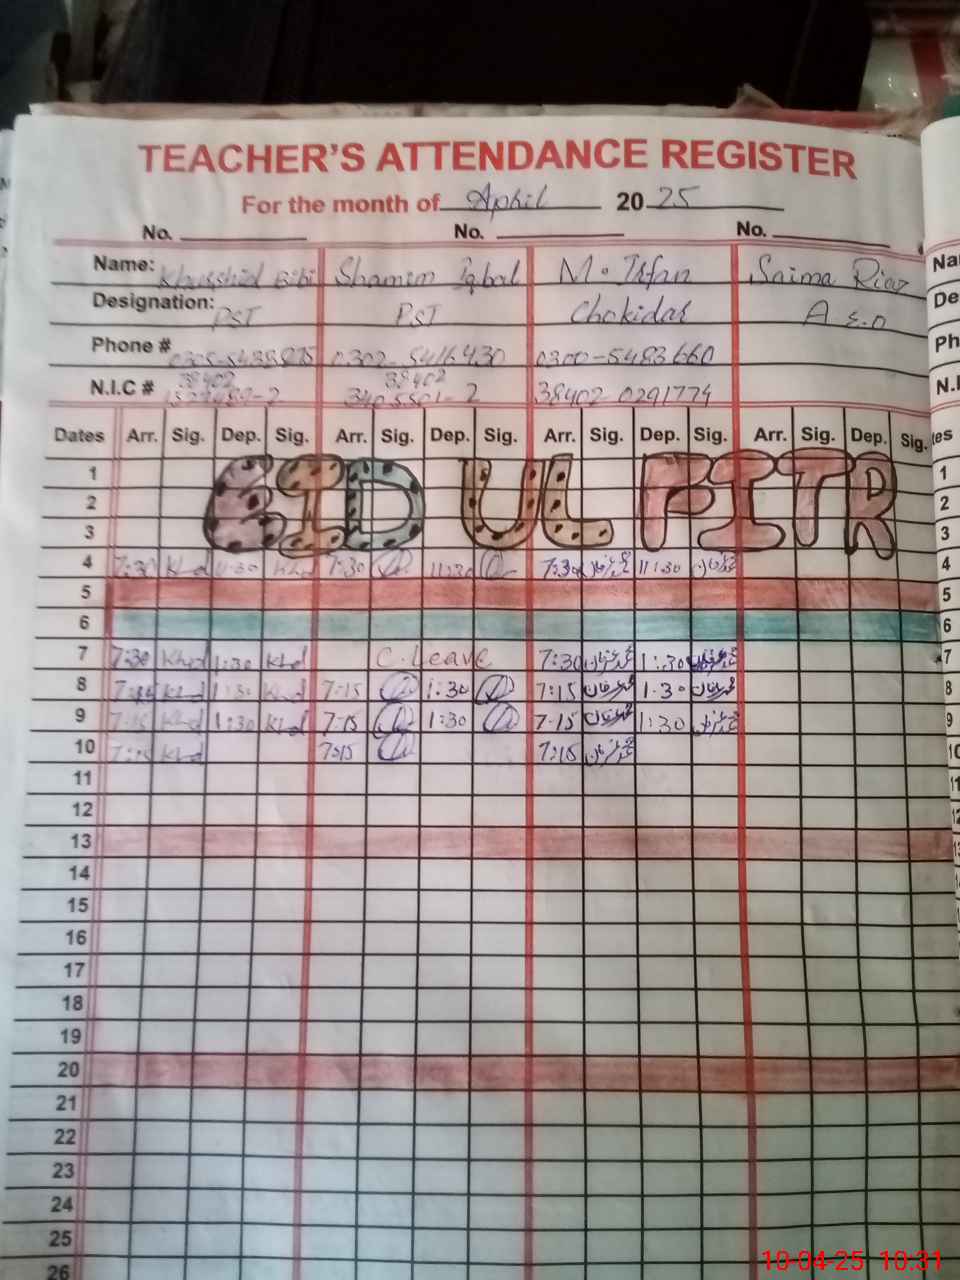 TEACHER'S ATTENDANCE REGISTER
For the month of April 2025
No. No. No.
Name: Khurshid Bibi Shamim Iqbal M. Irfan Saima Riaz
Designation: PST PST Chokidar A.E.O
Phone # 0302-5416430 0300-5483660
N.I.C # 38402 38402 38402-0291774
Dates Arr. Sig. Dep. Sig. Arr. Sig. Dep. Sig. Arr. Sig. Dep. Sig. Arr. Sig. Dep. Sig.
1
2 EID UL FITR
3
4 7:30 Khd 11:30 Khd 7:30 11:30 7:30 11:30
5
6
7 7:30 Khd 1:30 Khd C.Leave 7:30 1:30
8 7:15 Khd 1:30 Khd 7:15 1:30 7:15 1.30
9 7:15 Khd 1:30 Khd 7:15 1:30 7-15 1:30
10 7:15 Khd 7:15 7:15
11
12
13
14
15
16
17
18
19
20
21
22
23
24
25
26
10-04-25 10:31